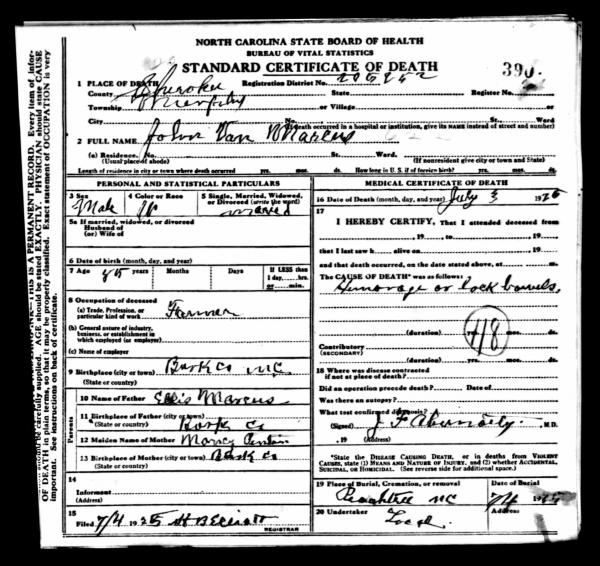 NORTH CAROLINA STATE BOARD OF HEALTH
BUREAU OF VITAL STATISTICS
STANDARD CERTIFICATE OF DEATH
390
1 PLACE OF DEATH
Registration District No.
County Cherokee State Register No.
Township Murphy or Village or
City No. St. Ward
(If death occurred in a hospital or institution, give its NAME instead of street and number)
2 FULL NAME John Van Marcus
(a) Residence. No. St. Ward.
(Usual place of abode) (If nonresident give city or town and State)
Length of residence in city or town where death occurred yrs. mos. ds. How long in U. S. if of foreign birth? yrs. mos. ds.
PERSONAL AND STATISTICAL PARTICULARS
3 Sex 4 Color or Race 5 Single, Married, Widowed, or Divorced (write the word)
Male married
5a If married, widowed, or divorced
Husband of
(or) Wife of
6 Date of birth (month, day, and year)
7 Age years Months Days If LESS than
1 day, hrs.
or min.
8 Occupation of deceased
(a) Trade, Profession, or
particular kind of work Farmer
(b) General nature of industry,
business, or establishment in
which employed (or employer)
(c) Name of employer
9 Birthplace (city or town) Burk co NC
(State or country)
Parents
10 Name of Father Ellis Marcus
11 Birthplace of Father (city or town)
(State or country) Burk Co
12 Maiden Name of Mother
13 Birthplace of Mother (city or town) Burk Co
(State or country)
14
Informant
(Address)
15
Filed 7/4 1925 H B Elliott
REGISTRAR
MEDICAL CERTIFICATE OF DEATH
16 Date of Death (month, day, and year) July 3 1925
17
I HEREBY CERTIFY, That I attended deceased from
, 19 , to , 19
that I last saw h alive on , 19
and that death occurred, on the date stated above, at m.
The CAUSE OF DEATH* was as follows:
Hemorage or lock bowels,
118
(duration) yrs. mos. ds.
Contributory
(SECONDARY)
(duration) yrs. mos. ds.
18 Where was disease contracted
if not at place of death?
Did an operation precede death? Date of
Was there an autopsy?
What test confirmed diagnosis?
(Signed) J F Abernathy, M.D.
, 19 (Address)
*State the DISEASE CAUSING DEATH, or in deaths from VIOLENT
CAUSES, state (1) MEANS AND NATURE OF INJURY, and (2) whether ACCIDENTAL,
SUICIDAL, or HOMICIDAL. (See reverse side for additional space.)
19 Place of Burial, Cremation, or removal Date of Burial
Peachtree NC 7/4 1925
20 Undertaker Local
A PERMANENT RECORD. Every item of infor-
should be carefully supplied. AGE should be stated EXACTLY. PHYSICIAN should state CAUSE
OF DEATH in plain terms, so that it may be properly classified. Exact statement of OCCUPATION is very
important. See instructions on back of certificate.